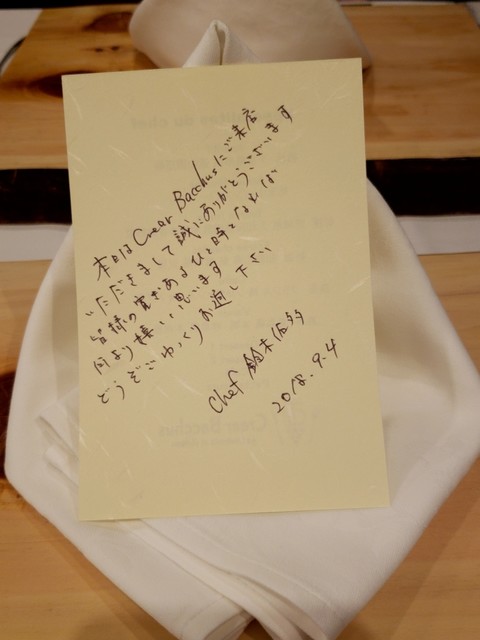 本日はCrear Bacchusにご来店
いただきまして誠にありがとうございます
皆様の寛ぎあるひと時となれば
何より嬉しく思います
どうぞごゆっくりお過し下さい
Chef 鈴木
2018.9.4
Crear Bacchus